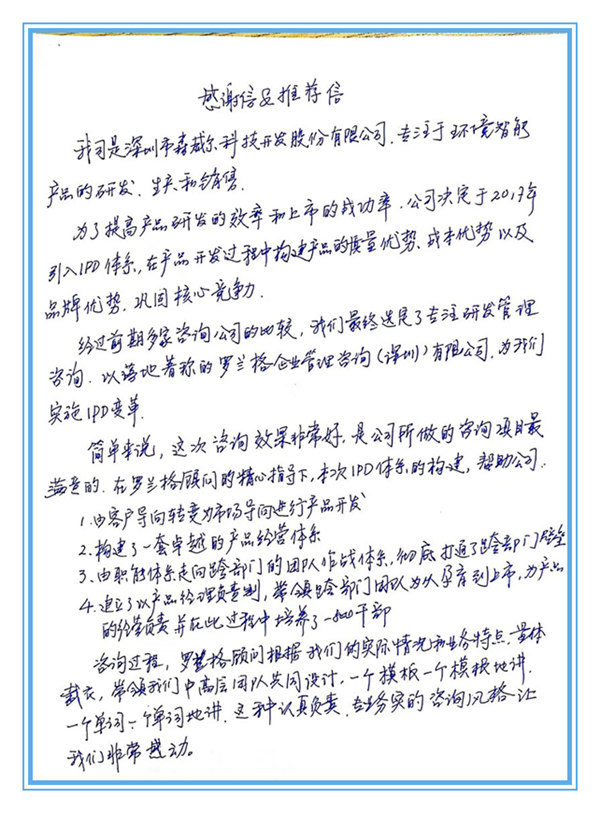 感谢信及推荐信
我司是深圳市森威尔科技开发股份有限公司、专注于环境智能
产品的研发、生产和销售.
为了提高产品研发的效率和上市的成功率、公司决定于2017年
引入IPD体系,在产品开发过程中构建产品的质量优势、成本优势以及
品牌优势、巩固核心竞争力.
经过前期多家咨询公司的比较、我们最终选定了专注研发管理
咨询、以落地着称的罗兰格企业管理咨询(深圳)有限公司,为我们
实施IPD变革.
简单来说,这次咨询效果非常好、是公司所做的咨询项目最
满意的.在罗兰格顾问的精心指导下,本次IPD体系的构建,帮助公司.
1.由客户导向转变为市场导向进行产品开发
2.构建了一套卓越的产品经营体系
3.由职能体系走向跨部门的团队作战体系,彻底打通了跨部门壁垒
4.建立了以产品经理负责制,带领跨部门团队为从孕育到上市,为产品
的经营负责并在此过程中培养了一batch干部
咨询过程,罗兰格顾问根据我们的实际情况和业务特点,量体
裁衣,带领我们中高层团队共同设计,一个模板一个模板地讲.
一个单词一个单词地讲.这种认真负责、专业务实的咨询风格让
我们非常感动。